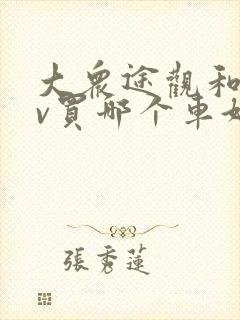 大眾途觀和
v買哪个車好
張秀蓮